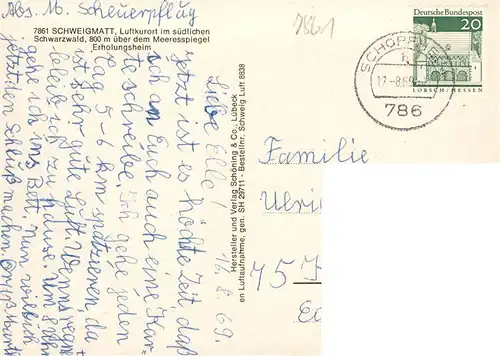 Abs. M. Scheuerpflug
7861 SCHWEIGMATT, Luftkurort im südlichen
Schwarzwald, 800 m über dem Meeresspiegel
Erholungsheim
16. 8. 69.
Liebe Elle!
Jetzt ist es höchste Zeit, daß
ich an Euch auch eine Kar-
te schreibe. Ich gehe jeden
Tag 5-6 km spazieren, da
ist sehr gute Luft. Wenns regnet
bleib ich zu Hause. Um 8 Uhr
gehe ich ins Bett. Nun will ich
jetzt den Schluß machen.
Hersteller und Verlag Schöning & Co., Lübeck
en Luftaufnahme, gen. SH 29711 - Bestellnr. Schweig Luft 8838
7861
Deutsche Bundespost
20
LORSCH/HESSEN
SCHOPFHEIM
h
17.-8.69
786
Familie
Ulri
75